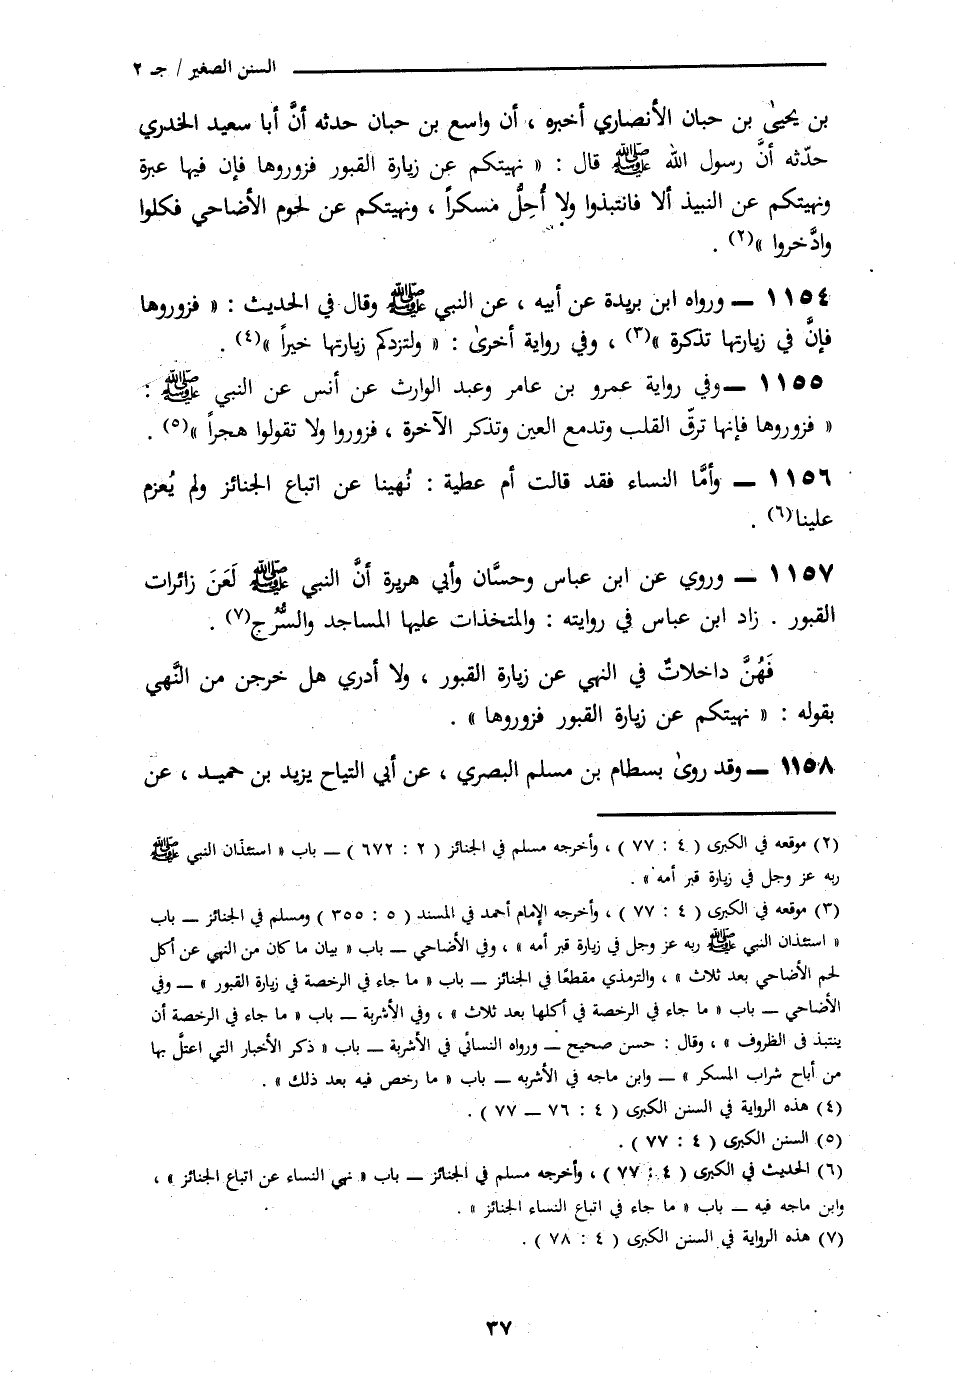 السنن الصغير / جـ ٢
بن يحيىٰ بن حبان الأنصاري أخبره ، أن واسع بن حبان حدثه أنَّ أبا سعيد الخدري
حدّثه أنَّ رسول الله ﷺ قال : « نهيتكم عن زيارة القبور فزوروها فإن فيها عبرة
ونهيتكم عن النبيذ ألا فانتبذوا ولا أُحِلُّ مسكراً ، ونهيتكم عن لحوم الأضاحي فكلوا
وادَّخروا »(٢) .
١١٥٤ ــ ورواه ابن بريدة عن أبيه ، عن النبي ﷺ وقال في الحديث : « فزوروها
فإنَّ في زيارتها تذكرة »(٣) ، وفي رواية أخرىٰ : « ولتزدكم زيارتها خيراً »(٤) .
١١٥٥ ــ وفي رواية عمرو بن عامر وعبد الوارث عن أنس عن النبي ﷺ :
« فزوروها فإنها ترقّ القلب وتدمع العين وتذكر الآخرة ، فزوروا ولا تقولوا هجراً »(٥) .
١١٥٦ ــ وأمَّا النساء فقد قالت أم عطية : نُهينا عن اتباع الجنائز ولم يُعزم
علينا(٦) .
١١٥٧ ــ وروي عن ابن عباس وحسَّان وأبي هريرة أنَّ النبي ﷺ لَعَنَ زائرات
القبور . زاد ابن عباس في روايته : والمتخذات عليها المساجد والسُّرُج(٧) .
فَهُنَّ داخلاتٌ في النهي عن زيارة القبور ، ولا أدري هل خرجن من النَّهي
بقوله : « نهيتكم عن زيارة القبور فزوروها » .
١١٥٨ ــ وقد روىٰ بسطام بن مسلم البصري ، عن أبي التياح يزيد بن حميد ، عن
(٢) موقعه في الكبرى ( ٤ : ٧٧ ) ، وأخرجه مسلم في الجنائز ( ٢ : ٦٧٢ ) ــ باب « استئذان النبي ﷺ
ربه عز وجل في زيارة قبر أمه » .
(٣) موقعه في الكبرى ( ٤ : ٧٧ ) ، وأخرجه الإمام أحمد في المسند ( ٥ : ٣٥٥ ) ومسلم في الجنائز ــ باب
« استئذان النبي ﷺ ربه عز وجل في زيارة قبر أمه » ، وفي الأضاحي ــ باب « بيان ما كان من النهي عن أكل
لحم الأضاحي بعد ثلاث » ، والترمذي مقطعًا في الجنائز ــ باب « ما جاء في الرخصة في زيارة القبور » ــ وفي
الأضاحي ــ باب « ما جاء في الرخصة في أكلها بعد ثلاث » ، وفي الأشربة ــ باب « ما جاء في الرخصة أن
ينتبذ فى الظروف » ، وقال : حسن صحيح ــ ورواه النسائي في الأشربة ــ باب « ذكر الأخبار التي اعتلَّ بها
من أباح شراب المسكر » ــ وابن ماجه في الأشربه ــ باب « ما رخص فيه بعد ذلك » .
(٤) هذه الرواية في السنن الكبرى ( ٤ : ٧٦ ــ ٧٧ ) .
(٥) السنن الكبرى ( ٤ : ٧٧ ) .
(٦) الحديث في الكبرى ( ٤ : ٧٧ ) ، وأخرجه مسلم في الجنائز ــ باب « نهي النساء عن اتباع الجنائز » ،
وابن ماجه فيه ــ باب « ما جاء في اتباع النساء الجنائز » .
(٧) هذه الرواية في السنن الكبرى ( ٤ : ٧٨ ) .
٣٧